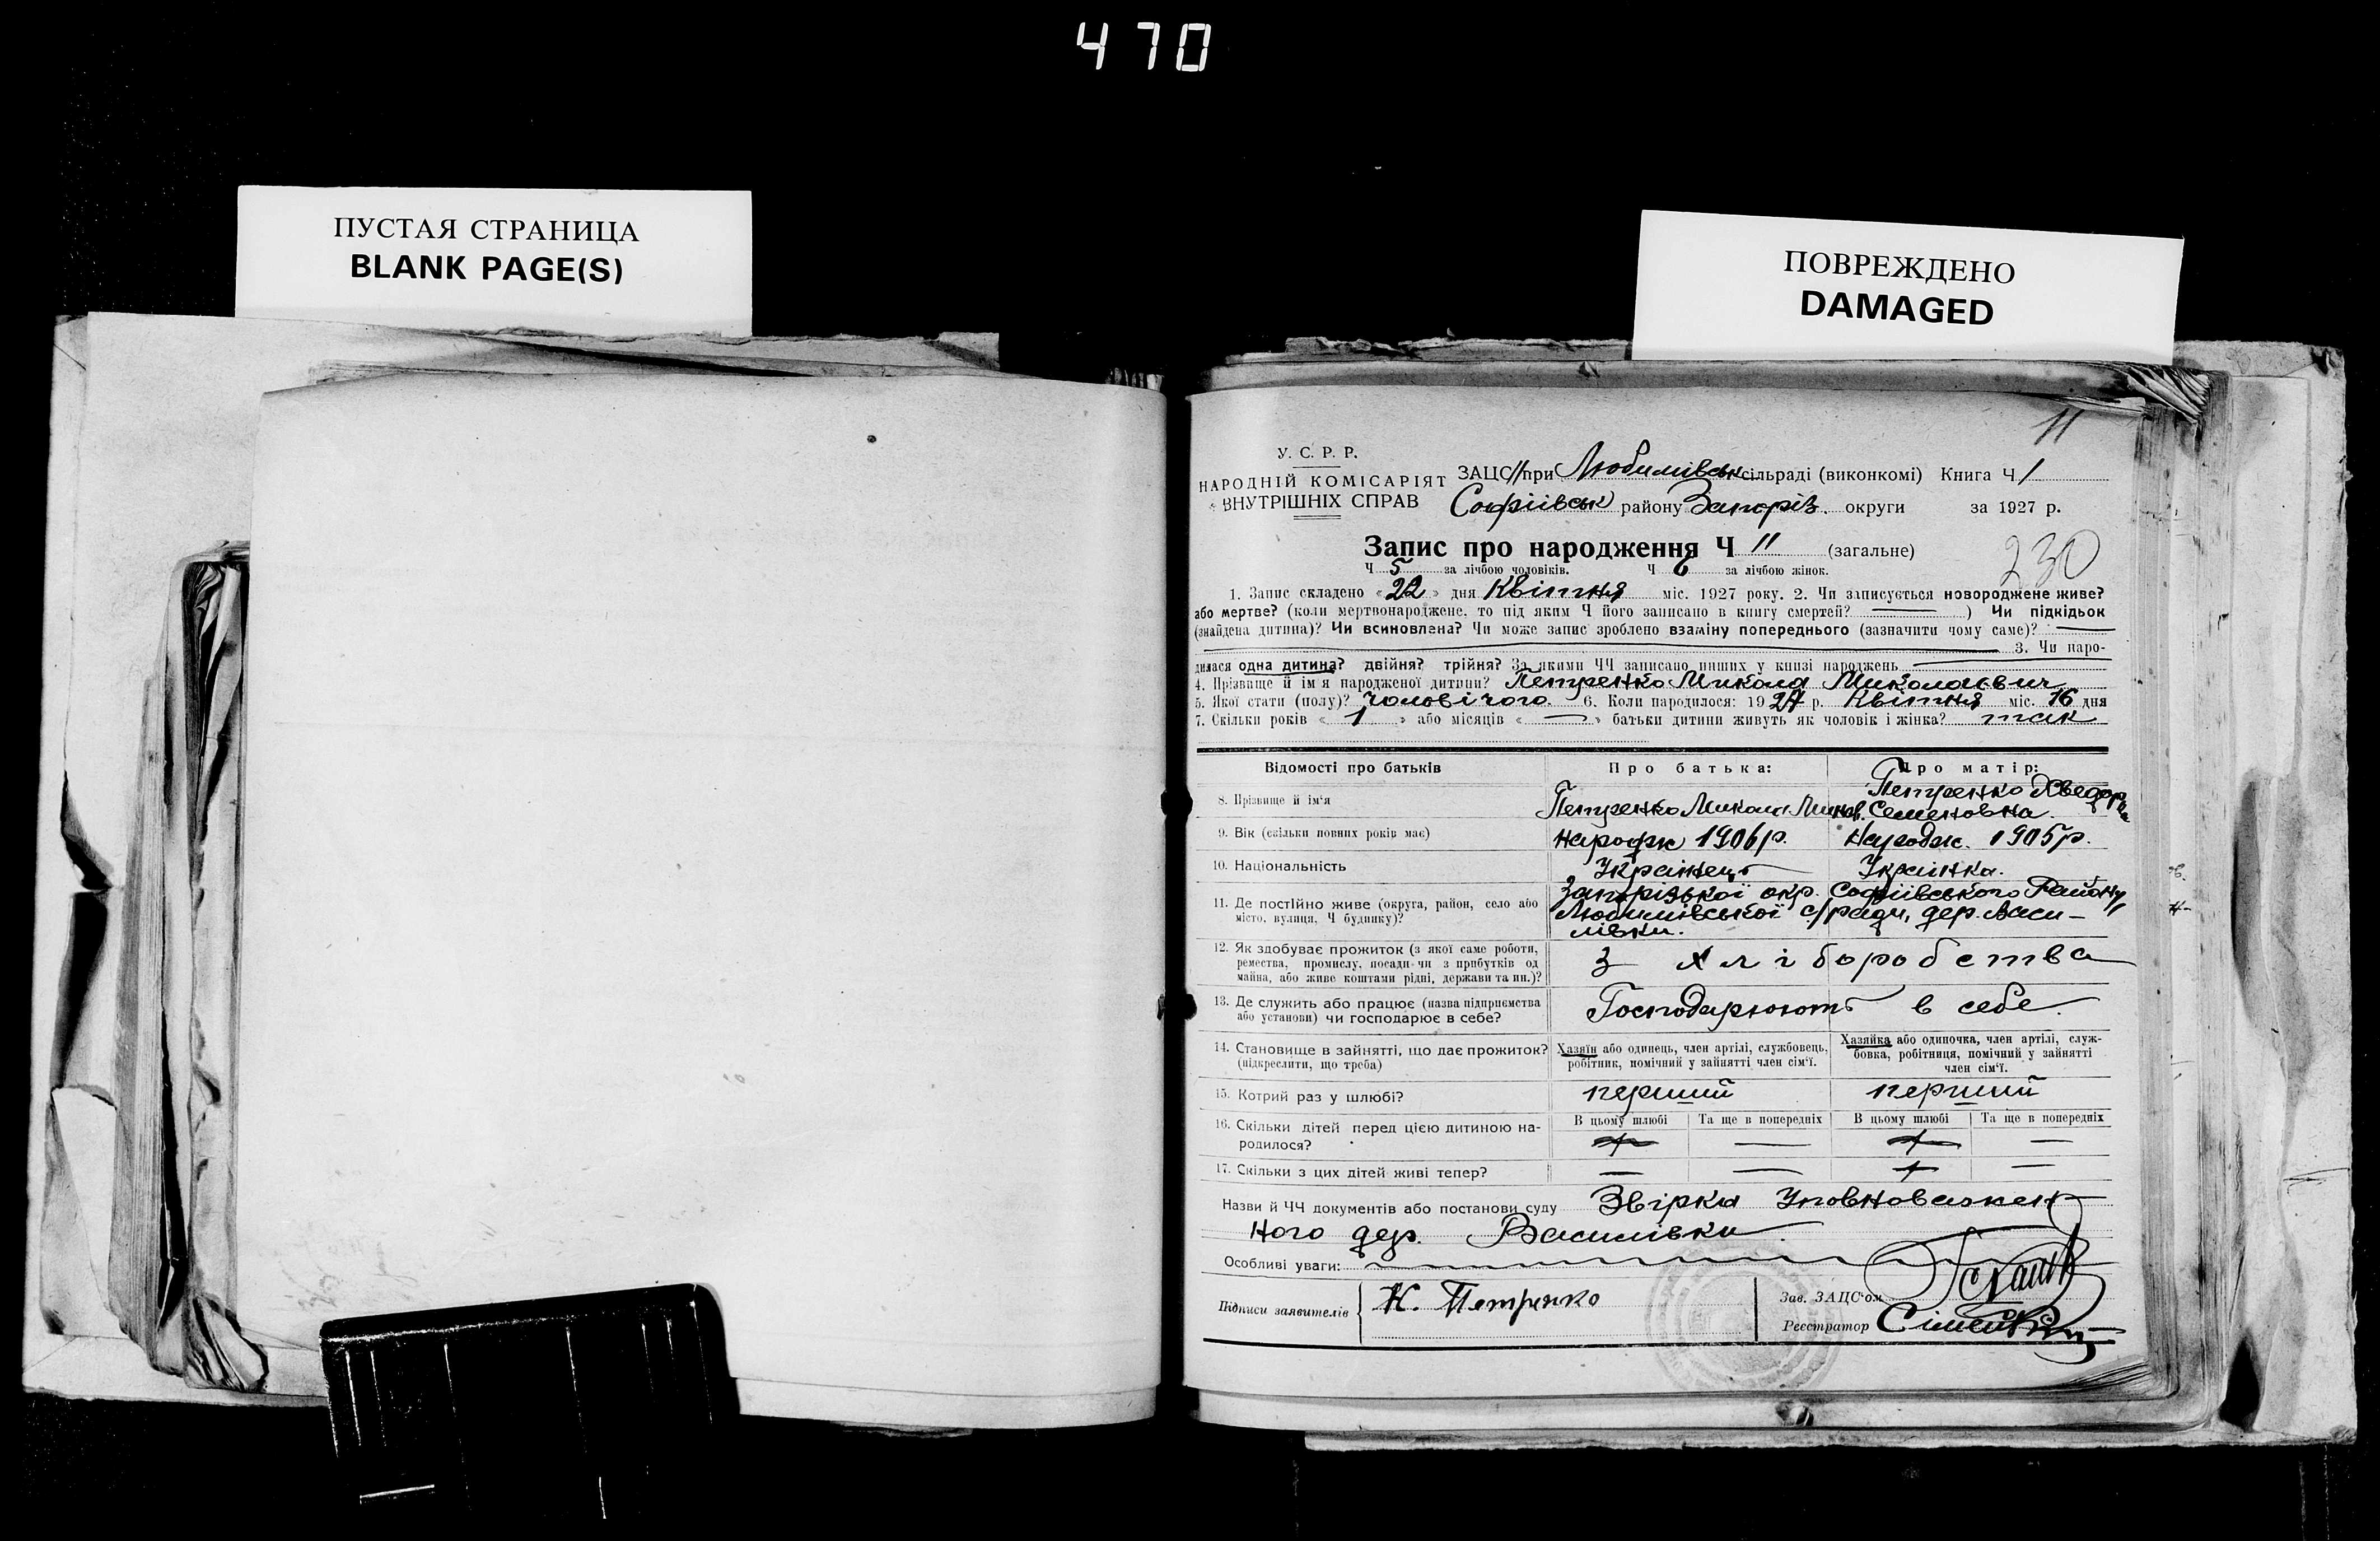 470
ПУСТАЯ СТРАНИЦА
BLANK PAGE(S)
ПОВРЕЖДЕНО
DAMAGED
11
У. С. Р. Р.
НАРОДНІЙ КОМІСАРІЯТ
ВНУТРІШНІХ СПРАВ
ЗАЦС // при Любимівськ сільраді (виконкомі) Книга Ч 1
Софіївськ району Запоріз. округи за 1927 р.
Запис про народження Ч 11 (загальне)
230
Ч 5 за лічбою чоловіків. Ч 6 за лічбою жінок.
1. Запис складено «22» дня Квітня міс. 1927 року. 2. Чи записується новороджене живе?
або мертве? (коли мертвонароджене, то під яким Ч його записано в книгу смертей? — ) Чи підкідьок
(знайдена дитина)? Чи всиновлена? Чи може запис зроблено взаміну попереднього (зазначити чому саме)? —
3. Чи наро-
дилася одна дитина? двійня? трійня? За якими ЧЧ записано инших у книзі народжень —
4. Прізвище й ім'я народженої дитини? Петренко Микола Миколаєвич
5. Якої стати (полу)? Чоловічого 6. Коли народилося: 1927 р. Квітня міс. 16 дня
7. Скільки років « 1 » або місяців « — » батьки дитини живуть як чоловік і жінка? так
Відомості про батьків Про батька: Про матір:
8. Прізвище й ім'я Петренко Микола Петренко Семеновна
9. Вік (скільки повних років має) Народж 1906 р. Народж. 1905 р.
10. Національність Українець Українка.
11. Де постійно живе (округа, район, село або
місто, вулиця, Ч будинку)?
Запорізької окр. Софіївського Району
Любимівської с/ради, дер. Васи-
лівки.
12. Як здобуває прожиток (з якої саме роботи,
ремества, промислу, посади чи з прибутків од
майна, або живе коштами рідні, держави та ин.)?
З хліборобства
13. Де служить або працює (назва підприємства
або установи) чи господарює в себе?
Господарюють в себе.
14. Становище в зайнятті, що дає прожиток?
(підкреслити, що треба)
Хазяїн або одинець, член артілі, службовець,
робітник, помічний у зайнятті член сім'ї.
Хазяйка або одиночка, член артілі, служ-
бовка, робітниця, помічний у зайнятті
член сім'ї.
15. Котрий раз у шлюбі? перший перший
16. Скільки дітей перед цією дитиною на-
родилося?
В цьому шлюбі Та ще в попередніх В цьому шлюбі Та ще в попередніх
17. Скільки з цих дітей живі тепер?
Назви й ЧЧ документів або постанови суду Звірка Уповноважен
ного дер. Василівки.
Особливі уваги:
Підписи заявителів Н. Петренко
Зав. ЗАЦС'ом
Реєстратор